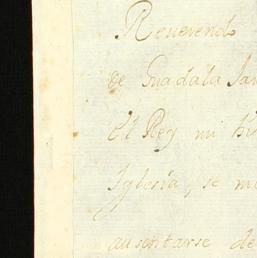 Reverendo
de Guadala Jar
El Rey mi
Iglesia, se
ausentarse de